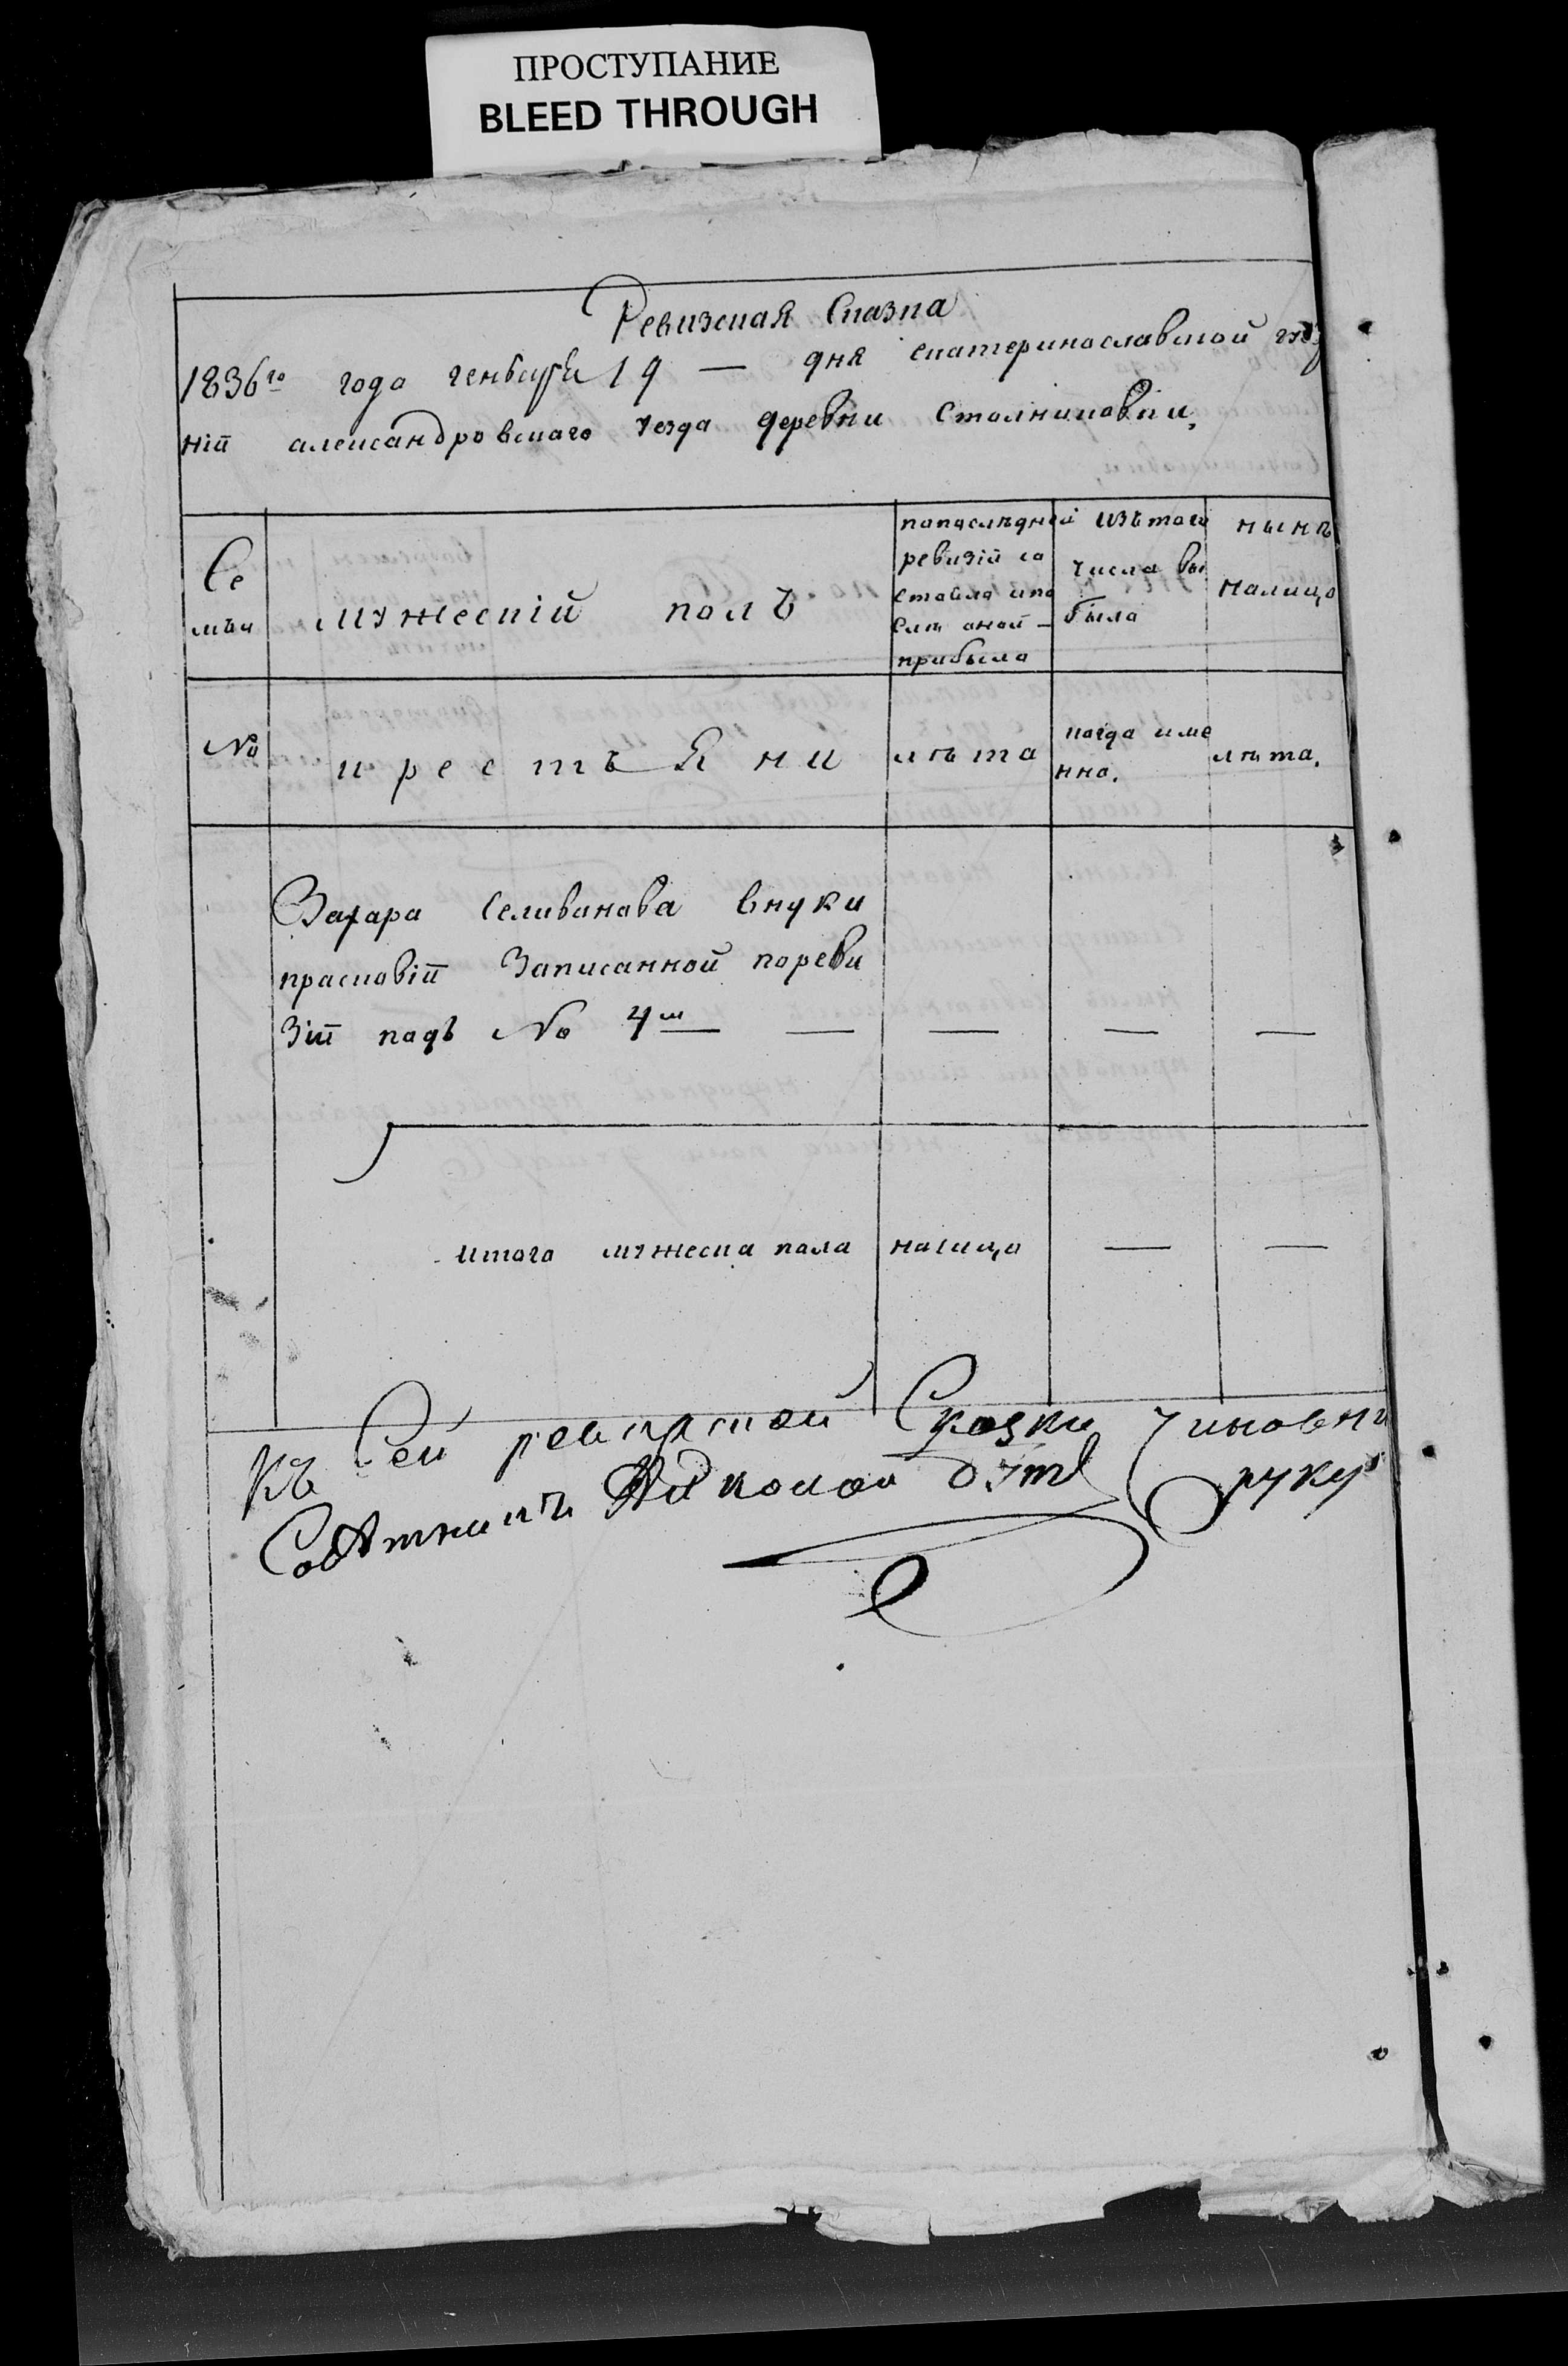 ПРОСТУПАНИЕ
BLEED THROUGH
Ревизская Сказка
1836го года генваря 19 — дня екатеринославской губер
ній александровскаго уезда деревни Столниковки.
Се
мьи
мужескій полъ
попоследней
ревизій со
стояло ипо
сле оной —
прибыло
изътого
числа вы
было
нынѣ
налицо
№
крестьЯни
лѣта
когда име
нно.
лѣта.
Захара Селиванова внуки
прасковій Записанной пореви
Зій подъ № 4м — — — —
итого мужеска пола налицо — —
Къ Сей ревизской Сказки Чиновни
руку